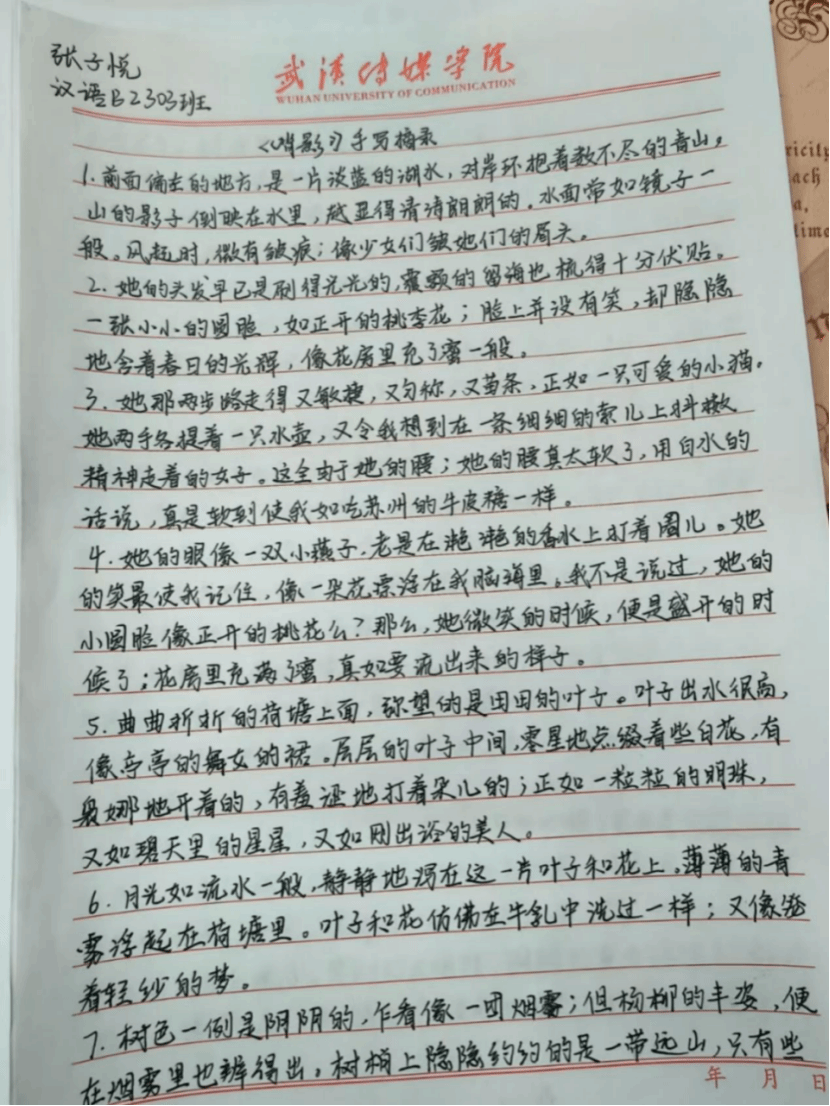 张子悦
汉语B2303班
武汉传媒学院
WUHAN UNIVERSITY OF COMMUNICATION
《背影》手写摘录
1.前面偏左的地方,是一片淡蓝的湖水,对岸环抱着数不尽的青山。
山的影子倒映在水里,越显得清清朗朗的。水面常如镜子一
般。风起时,微有皱痕;像少女们皱她们的眉头。
2.她的头发早已是刷得光光的,覆额的留海也梳得十分伏贴。
一张小小的圆脸,如正开的桃李花;脸上并没有笑,却隐隐
地含着春日的光辉,像花房里充了蜜一般。
3.她那两步路走得又敏捷,又匀称,又苗条,正如一只可爱的小猫。
她两手各提着一只水壶,又令我想到在一条细细的索儿上抖擞
精神走着的女子。这全由于她的腰;她的腰真太软了,用白水的
话说,真是软到使我如吃苏州的牛皮糖一样。
4.她的眼像一双小燕子,老是在滟滟的春水上打着圈儿。她
的笑最使我记住,像一朵花漂浮在我脑海里。我不是说过,她的
小圆脸像正开的桃花么?那么,她微笑的时候,便是盛开的时
候了;花房里充满了蜜,真如要流出来的样子。
5.曲曲折折的荷塘上面,弥望的是田田的叶子。叶子出水很高,
像亭亭的舞女的裙。层层的叶子中间,零星地点缀着些白花,有
袅娜地开着的,有羞涩地打着朵儿的;正如一粒粒的明珠,
又如碧天里的星星,又如刚出浴的美人。
6.月光如流水一般,静静地泻在这一片叶子和花上。薄薄的青
雾浮起在荷塘里。叶子和花仿佛在牛乳中洗过一样;又像笼
着轻纱的梦。
7.树色一例是阴阴的,乍看像一团烟雾;但杨柳的丰姿,便
在烟雾里也辨得出。树梢上隐隐约约的是一带远山,只有些
年 月 日
ricity
each
a,
time